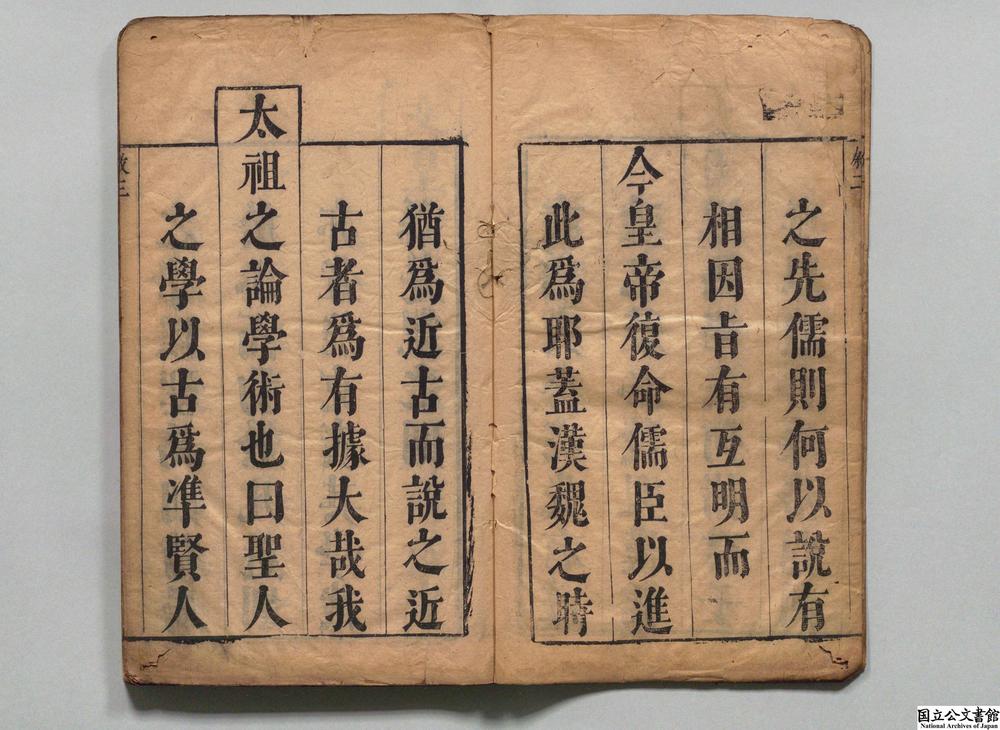 之先儒則何以說有
相因旨有互明而
今皇帝復命儒臣以進
此爲耶蓋漢魏之時
猶爲近古而說之近
古者爲有據大哉我
太祖之論學術也曰聖人
之學以古爲准賢人
国立公文書館
National Archives of Japan